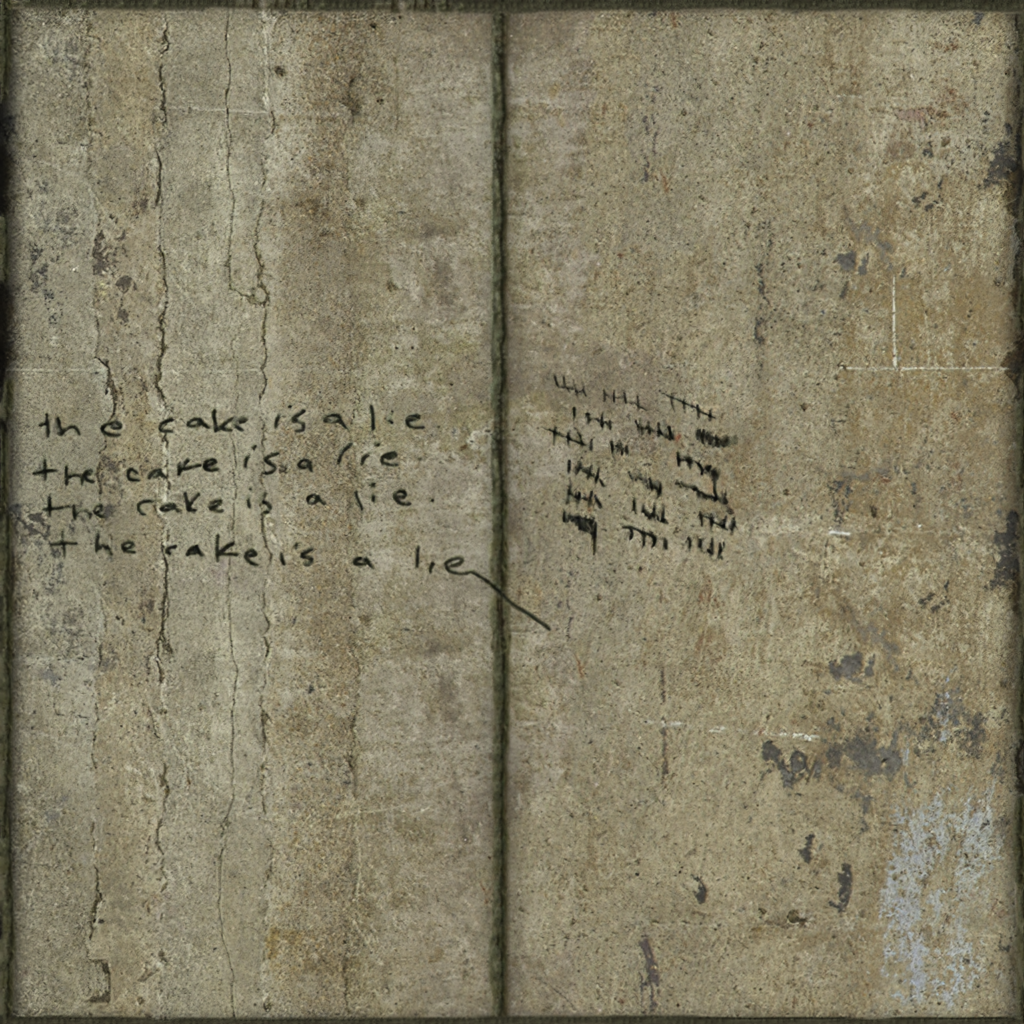 the cake is a lie
the cake is a lie
the cake is a lie.
the cake is a lie